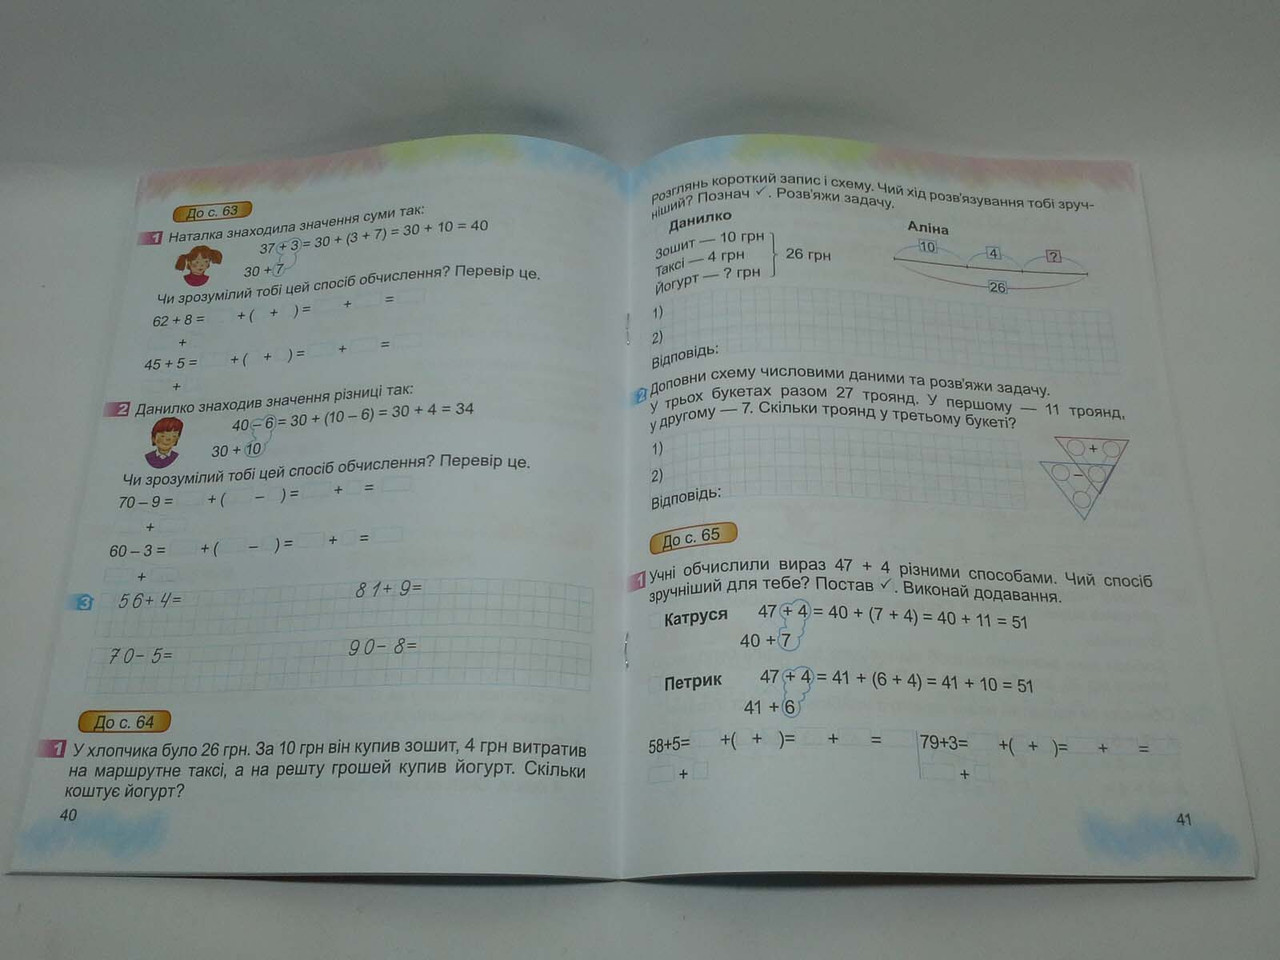 До с. 63
1 Наталка знаходила значення суми так:
37 + 3 = 30 + (3 + 7) = 30 + 10 = 40
30 + 7
Чи зрозумілий тобі цей спосіб обчислення? Перевір це.
62 + 8 = + ( + ) = + =
+
45 + 5 = + ( + ) = + =
+
2 Данилко знаходив значення різниці так:
40 – 6 = 30 + (10 – 6) = 30 + 4 = 34
30 + 10
Чи зрозумілий тобі цей спосіб обчислення? Перевір це.
70 – 9 = + ( – ) = + =
+
60 – 3 = + ( – ) = + =
+
3 56+4= 81+9=
70-5= 90-8=
До с. 64
1 У хлопчика було 26 грн. За 10 грн він купив зошит, 4 грн витратив
на маршрутне таксі, а на решту грошей купив йогурт. Скільки
коштує йогурт?
40
Розглянь короткий запис і схему. Чий хід розв'язування тобі зруч-
ніший? Познач ✓. Розв'яжи задачу.
Данилко
Зошит — 10 грн
Таксі — 4 грн
Йогурт — ? грн
26 грн
Аліна
10 4 ?
26
1)
2)
Відповідь:
2 Доповни схему числовими даними та розв'яжи задачу.
У трьох букетах разом 27 троянд. У першому — 11 троянд,
у другому — 7. Скільки троянд у третьому букеті?
1)
2)
Відповідь:
+
–
До с. 65
1 Учні обчислили вираз 47 + 4 різними способами. Чий спосіб
зручніший для тебе? Постав ✓. Виконай додавання.
Катруся 47 + 4 = 40 + (7 + 4) = 40 + 11 = 51
40 + 7
Петрик 47 + 4 = 41 + (6 + 4) = 41 + 10 = 51
41 + 6
58+5= +( + )= + = 79+3= +( + )= + =
+ +
41